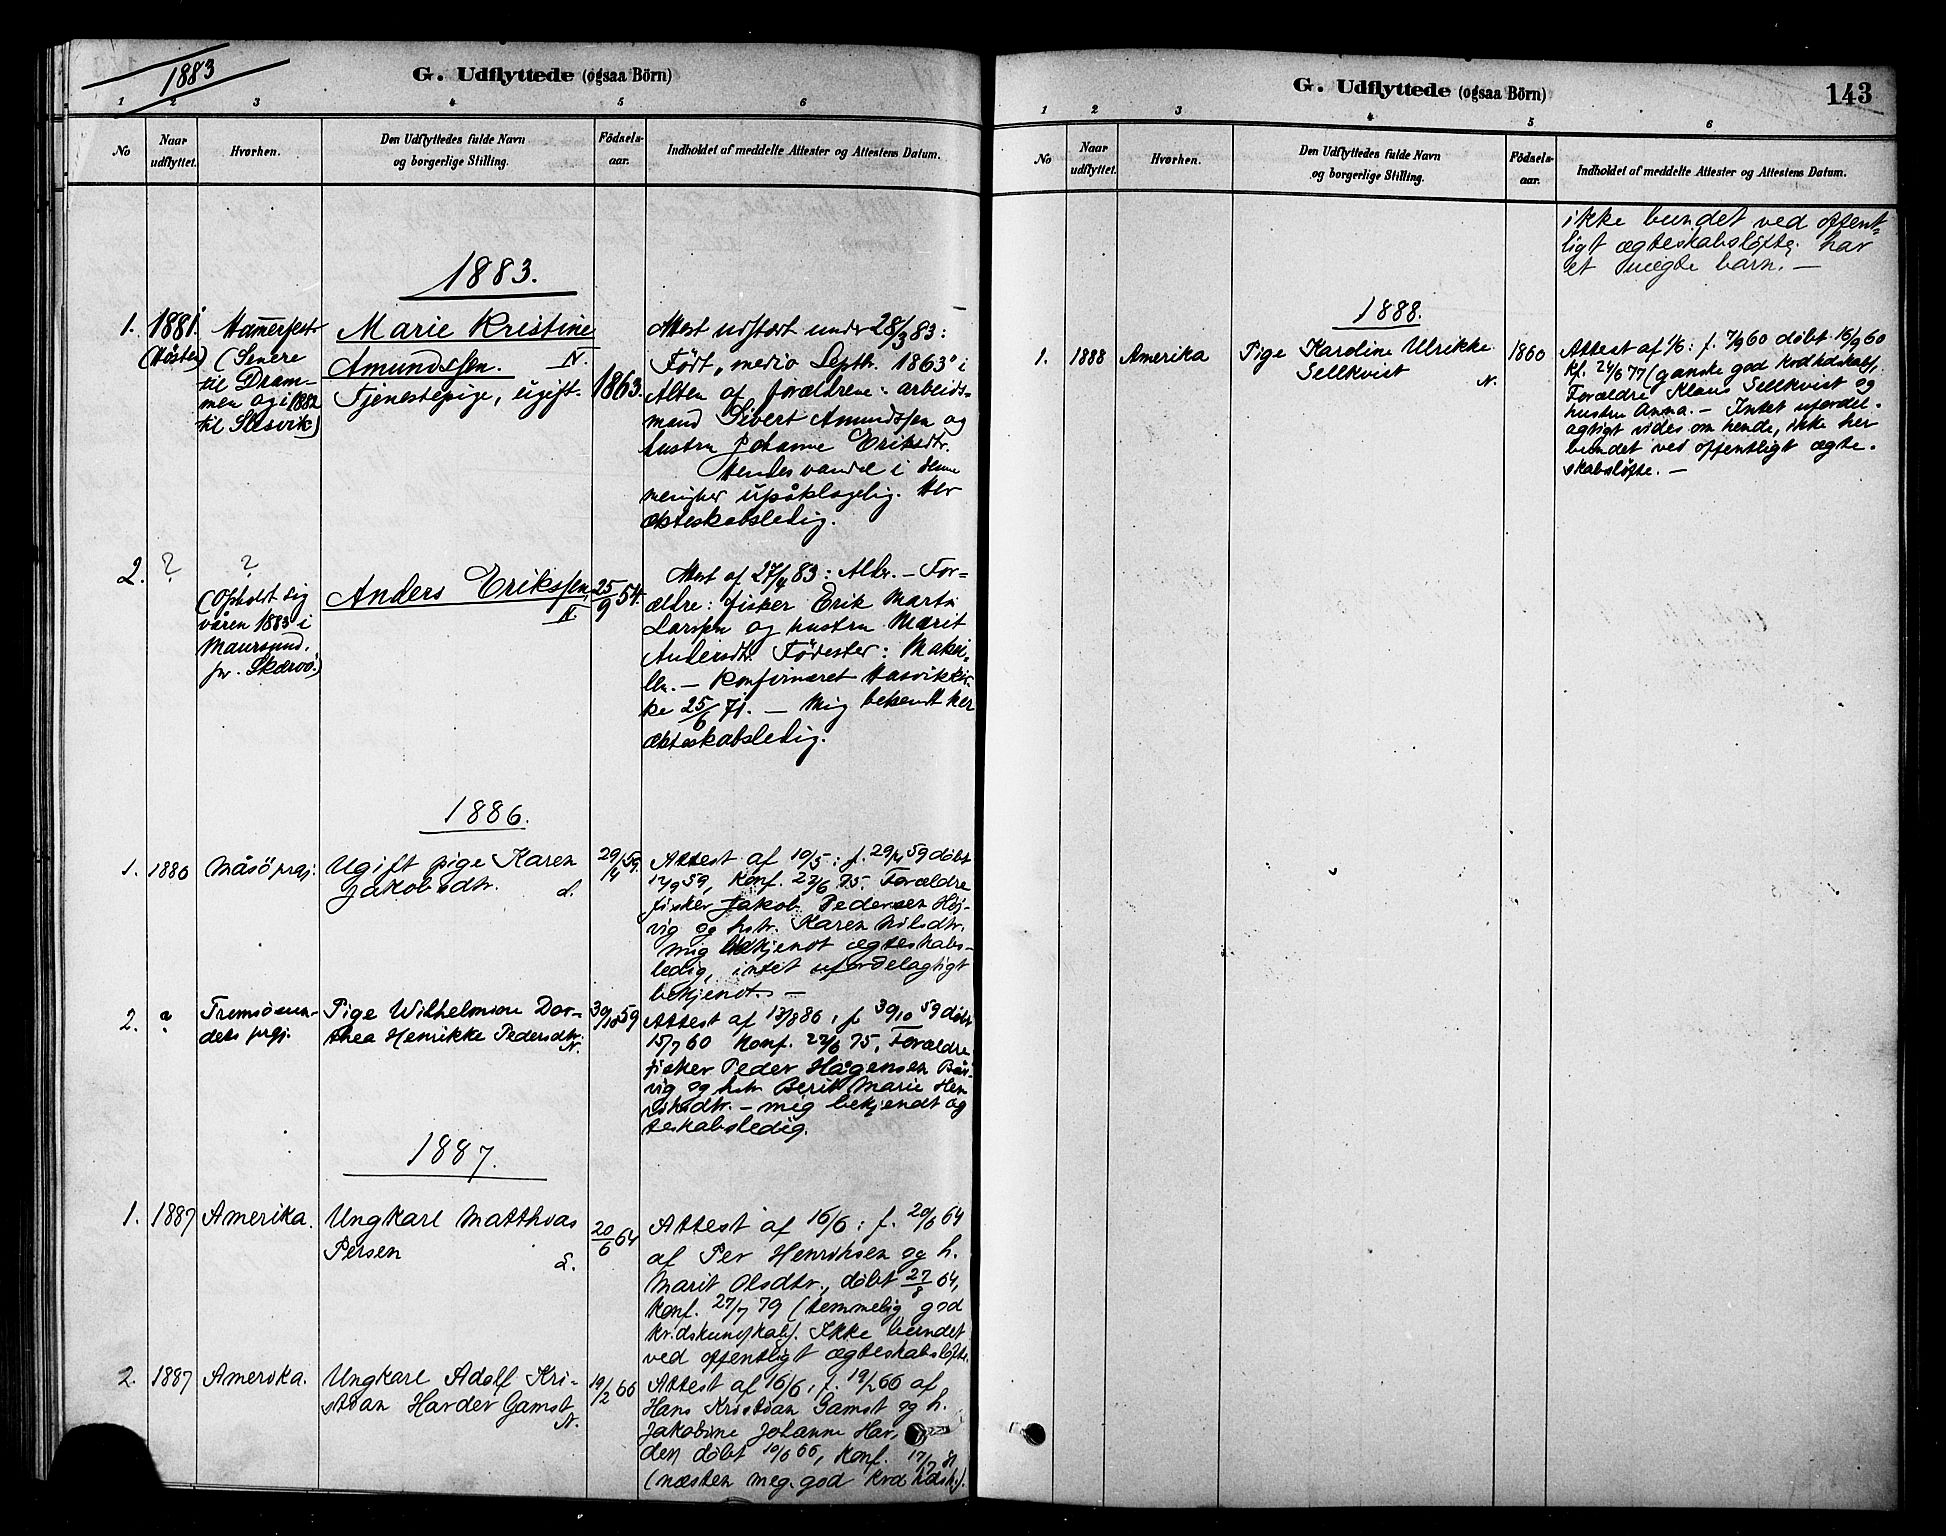 1883
G. Udflyttede (ogsaa Börn)
1 2 3 4 5 6
No
Naar udflyttet.
Hvorhen.
Den Udflyttedes fulde Navn og borgerlige Stilling.
Födsels-aar.
Indholdet af meddelte Attester og Attestens Datum.
1883.
1.
1881.
(Høsten)
Hammerfest
(Senere
til Dram-
men og i 1882
til Slesvik)
Marie Kristine
Amundssen. N.
Tjenestepige, ugift.
1863.
Attest udstædt under 28/3 83:
Født "medio Septb. 1863" i
Alten af forældrene: arbeids-
mand Sivert Amundssen og
hustru Johanne Eriksdtr.
Hendes vandel i denne
menighed upåklagelig. Her
ækteskabsledig.
2.
?
?
(Opholdt sig
våren 1883 i
Maursund,
pr. Skærvö.)
Anders Erikssen,
N.
25/9 54.
Attest af 27/4 83: Alder. – For-
ældre: fisker Erik Martin
Larssen og hustru Marit
Andersdtr. Födested:
– Konfirmeret Hasvikkir-
ke 25/6 71. – Mig bekendt her
ækteskabsledig.
1886.
1.
1886
Måsö prgj.
Ugift pige Karen
Jakobsdtr. L.
29/4 59.
Attest af 10/5: f. 29/4 59 døbt
17/9 59, konf. 27/6 75. Forældre
fisker Jakob Pedersen Høj-
vig og hstr. Karen Nilsdtr.
mig bekjendt ægteskabs-
ledig, intet ufordelagtigt
bekjendt. –
2.
?
Tromsösun-
dets prgj.
Pige Wilhelmine Dor-
thea Henrikke Pedersdtr.
N.
30/10 59
Attest af 13/8 86: f. 30/10 59 døbt
15/7 60 Konf. 27/6 75, Forældre
fisker Peder Hågensen Bår-
vig og hstr. Berit Marie Hen-
riksdtr. – mig bekjendt æg
teskabsledig.
1887.
1.
1887
Amerika.
Ungkarl Matthias
Persen L.
20/6 64
Attest af 16/6: f. 20/6 64
af Per Henriksen og h.
Marit Olsdtr., døbt 27/8 64,
konf. 27/7 79 (temmelig god
krdskundskab). Ikke bundet
ved offentligt ægteskabsløfte.
2.
1887
Amerika.
Ungkarl Adolf Kri-
stian Harder Gamst
N.
19/2 66
Attest af 16/6, f. 19/2 66 af
Hans Kristian Gamst og h.
Jakobine Johanne Har-
der, døbt 10/6 66, konf. 17/7
(næsten meg. god krd.kdsk.).
G. Udflyttede (ogsaa Börn)
143
1 2 3 4 5 6
No
Naar udflyttet.
Hvorhen.
Den Udflyttedes fulde Navn og borgerlige Stilling.
Födsels-aar.
Indholdet af meddelte Attester og Attestens Datum.
ikke bundet ved offent-
ligt ægteskabsløfte; har
et uægte barn. –
1888.
1.
1888
Amerika
Pige Kardine Ulrikke
Sellkvist N.
1860
Attest af 1/6: f. 7/9 60 døbt 16/9 60
kf. 24/6 77 (ganske god krdkdskab),
Forældre Klaus Sellkvist og
hustru Anna. – Intet ufordel-
agtigt vides om hende, ikke her
bundet ved offentligt ægte-
skabsløfte. –